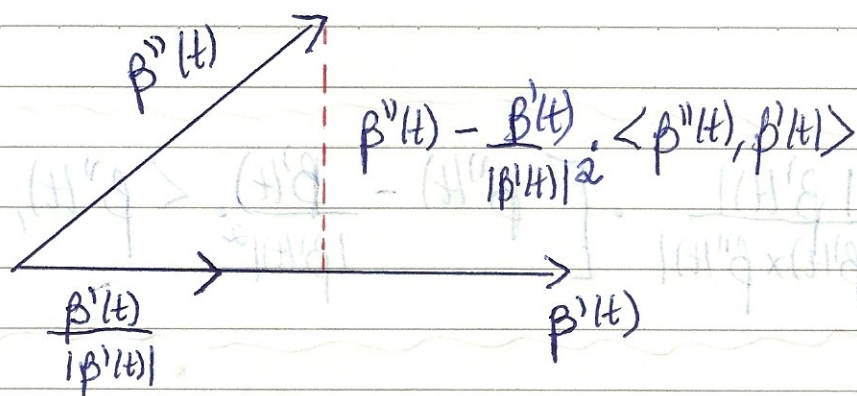 β''(t)
β''(t) - β'(t)/|β'(t)|². <β''(t), β'(t)>
β'(t)/|β'(t)|
β'(t)